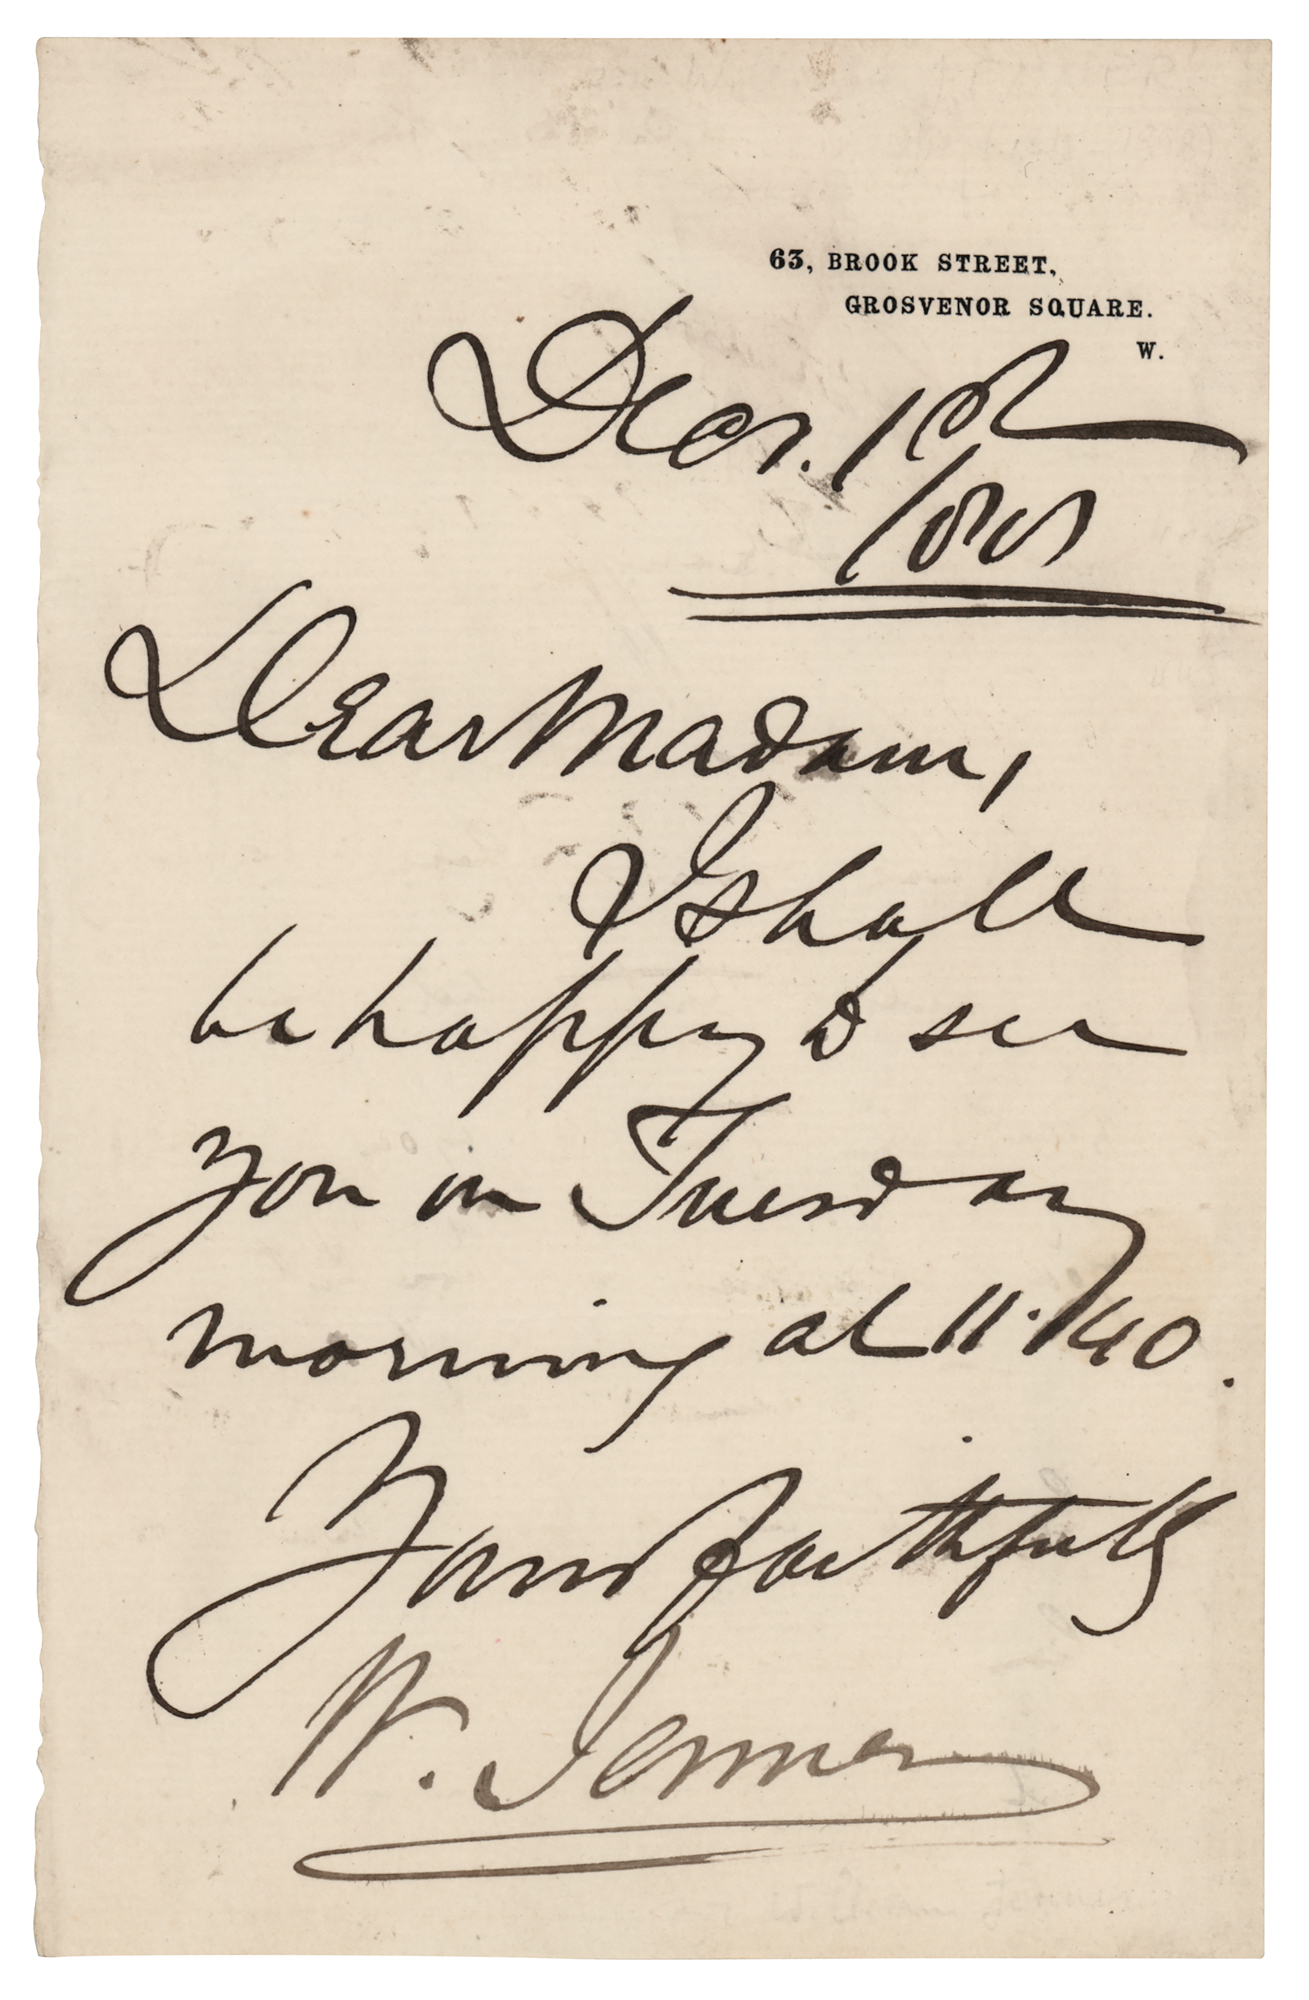 63, BROOK STREET,
GROSVENOR SQUARE.
W.
Decr.
Dear Madam,
I shall
be happy to see
you on Tuesday
morning at 11.40.
Yours faithfully
W. Jenner